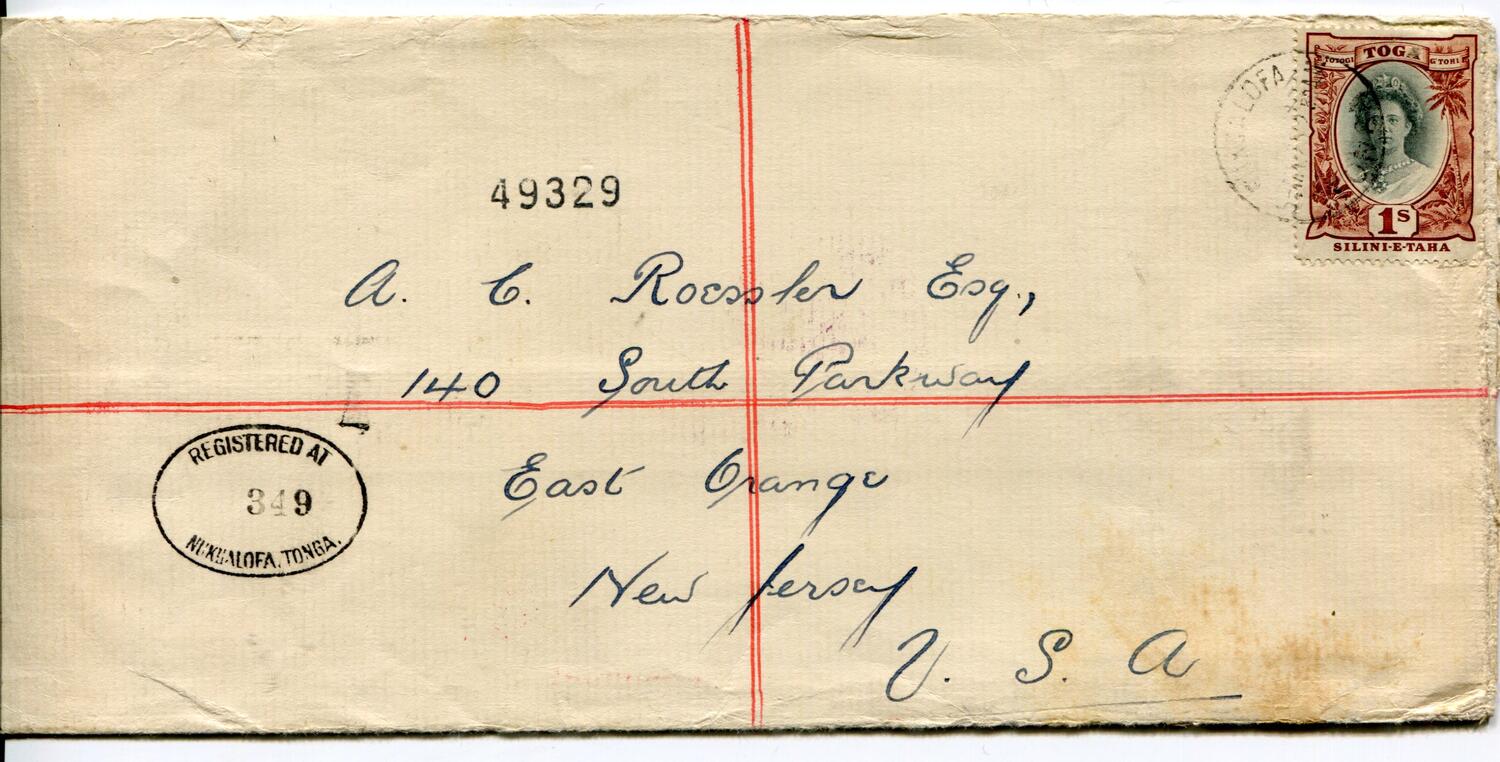 TOGA
TOTOGI
G TOHI
1s
SILINI-E-TAHA
49329
A. C. Roessler Esq.,
140 South Parkway
East Orange
New Jersey
U. S. A
REGISTERED AT
349
NUKUALOFA, TONGA.